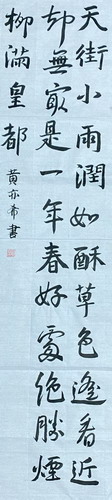 天街小雨潤如酥草色遙看近
却無最是一年春好處絕勝煙
柳滿皇都
黄亦希書